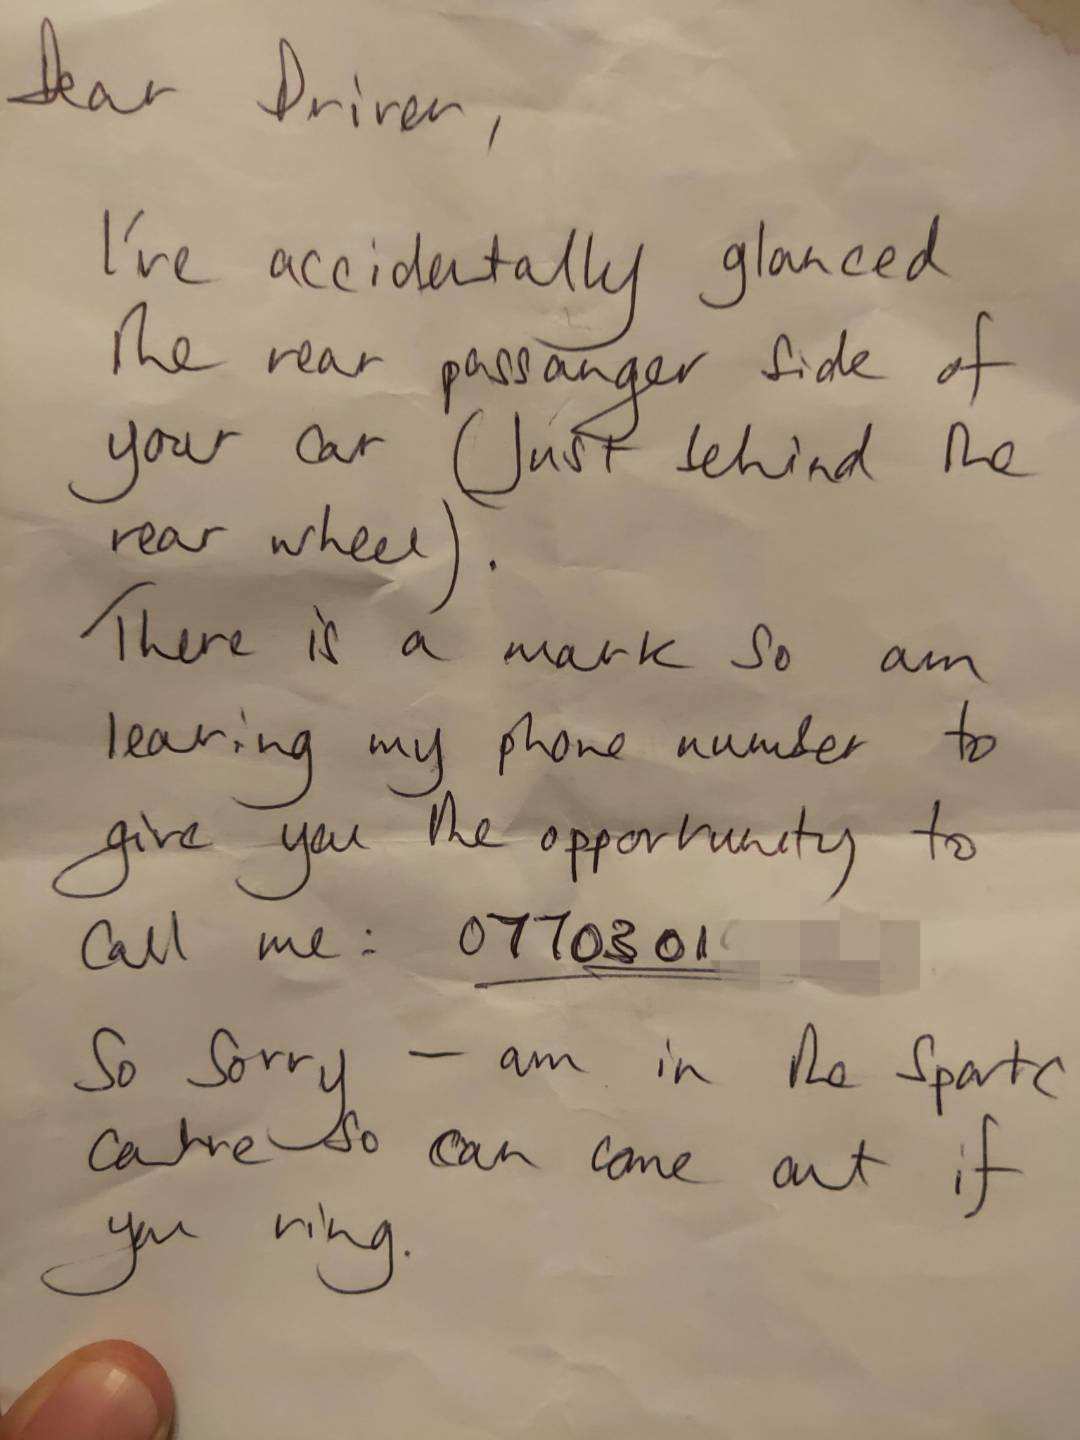 Dear Driver,
I've accidentally glanced
the rear passanger side of
your car (Just behind the
rear wheel).
There is a mark so am
leaving my phone number to
give you the opportunity to
call me: 0770301
So sorry – am in the Sports
Centre so can come out if
you ring.